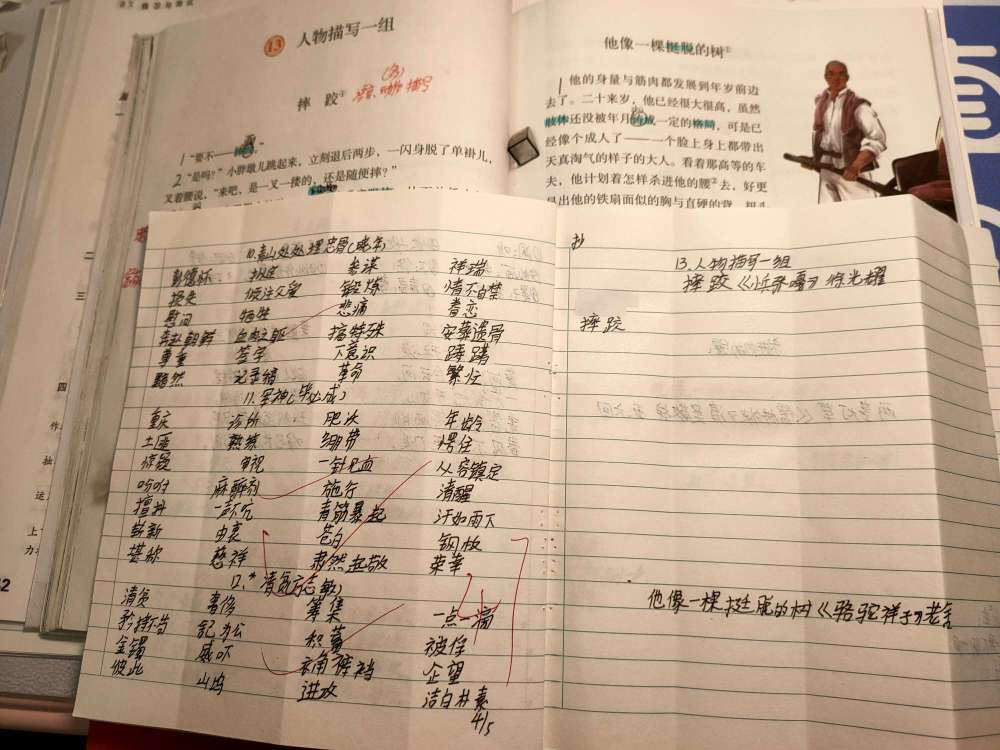 13 人物描写一组
摔跤①
1 “要不——
2 “是吗?”小胖墩儿跳起来，立刻退后两步，一闪身脱了单褂儿，
叉着腰说，“来吧，是一叉一搂的，还是随便摔?”
他像一棵挺脱的树①
1 他的身量与筋肉都发展到年岁前边
去了。二十来岁，他已经很大很高，虽然
肢体还没被年月铸成一定的格局，可是已
经像个成人了——一个脸上身上都带出
天真淘气的样子的大人。看着那高等的车
夫，他计划着怎样杀进他的腰②去，好更
显出他的铁扇面似的胸与直硬的背；扭头
10.青山处处埋忠骨
彭德怀 拟定 参谋 彬瑞
损失 倾注父爱 锻炼 情不自禁
慰问 牺牲 悲痛 眷恋
奔赴朝鲜 血肉之躯 搞特殊 安葬遗骨
尊重 签字 下意识 踌躇
黯然 记录稿 革命 繁忙
11.军神(毕必成)
重庆 诊所 肥沃 年龄
土匪 熟练 绷带 愣住
惊疑 审视 一针见血 从容镇定
吩咐 麻醉剂 施行 清醒
擅抖 一声不吭 青筋暴起 汗如雨下
崭新 由衷 苍白 钢板
堪称 慈祥 肃然起敬 荣幸
12.*清贫(方志敏)
清贫 奢侈 筹集 一点一滴
矜持不苟 积蓄 被俘
金镯 威吓 衣角裤裆 企望
彼此 山坞 进攻 洁白朴素
4/5
抄
13.人物描写一组
摔跤《小兵张嘎》徐光耀
摔跤
他像一棵挺脱的树《骆驼祥子》老舍